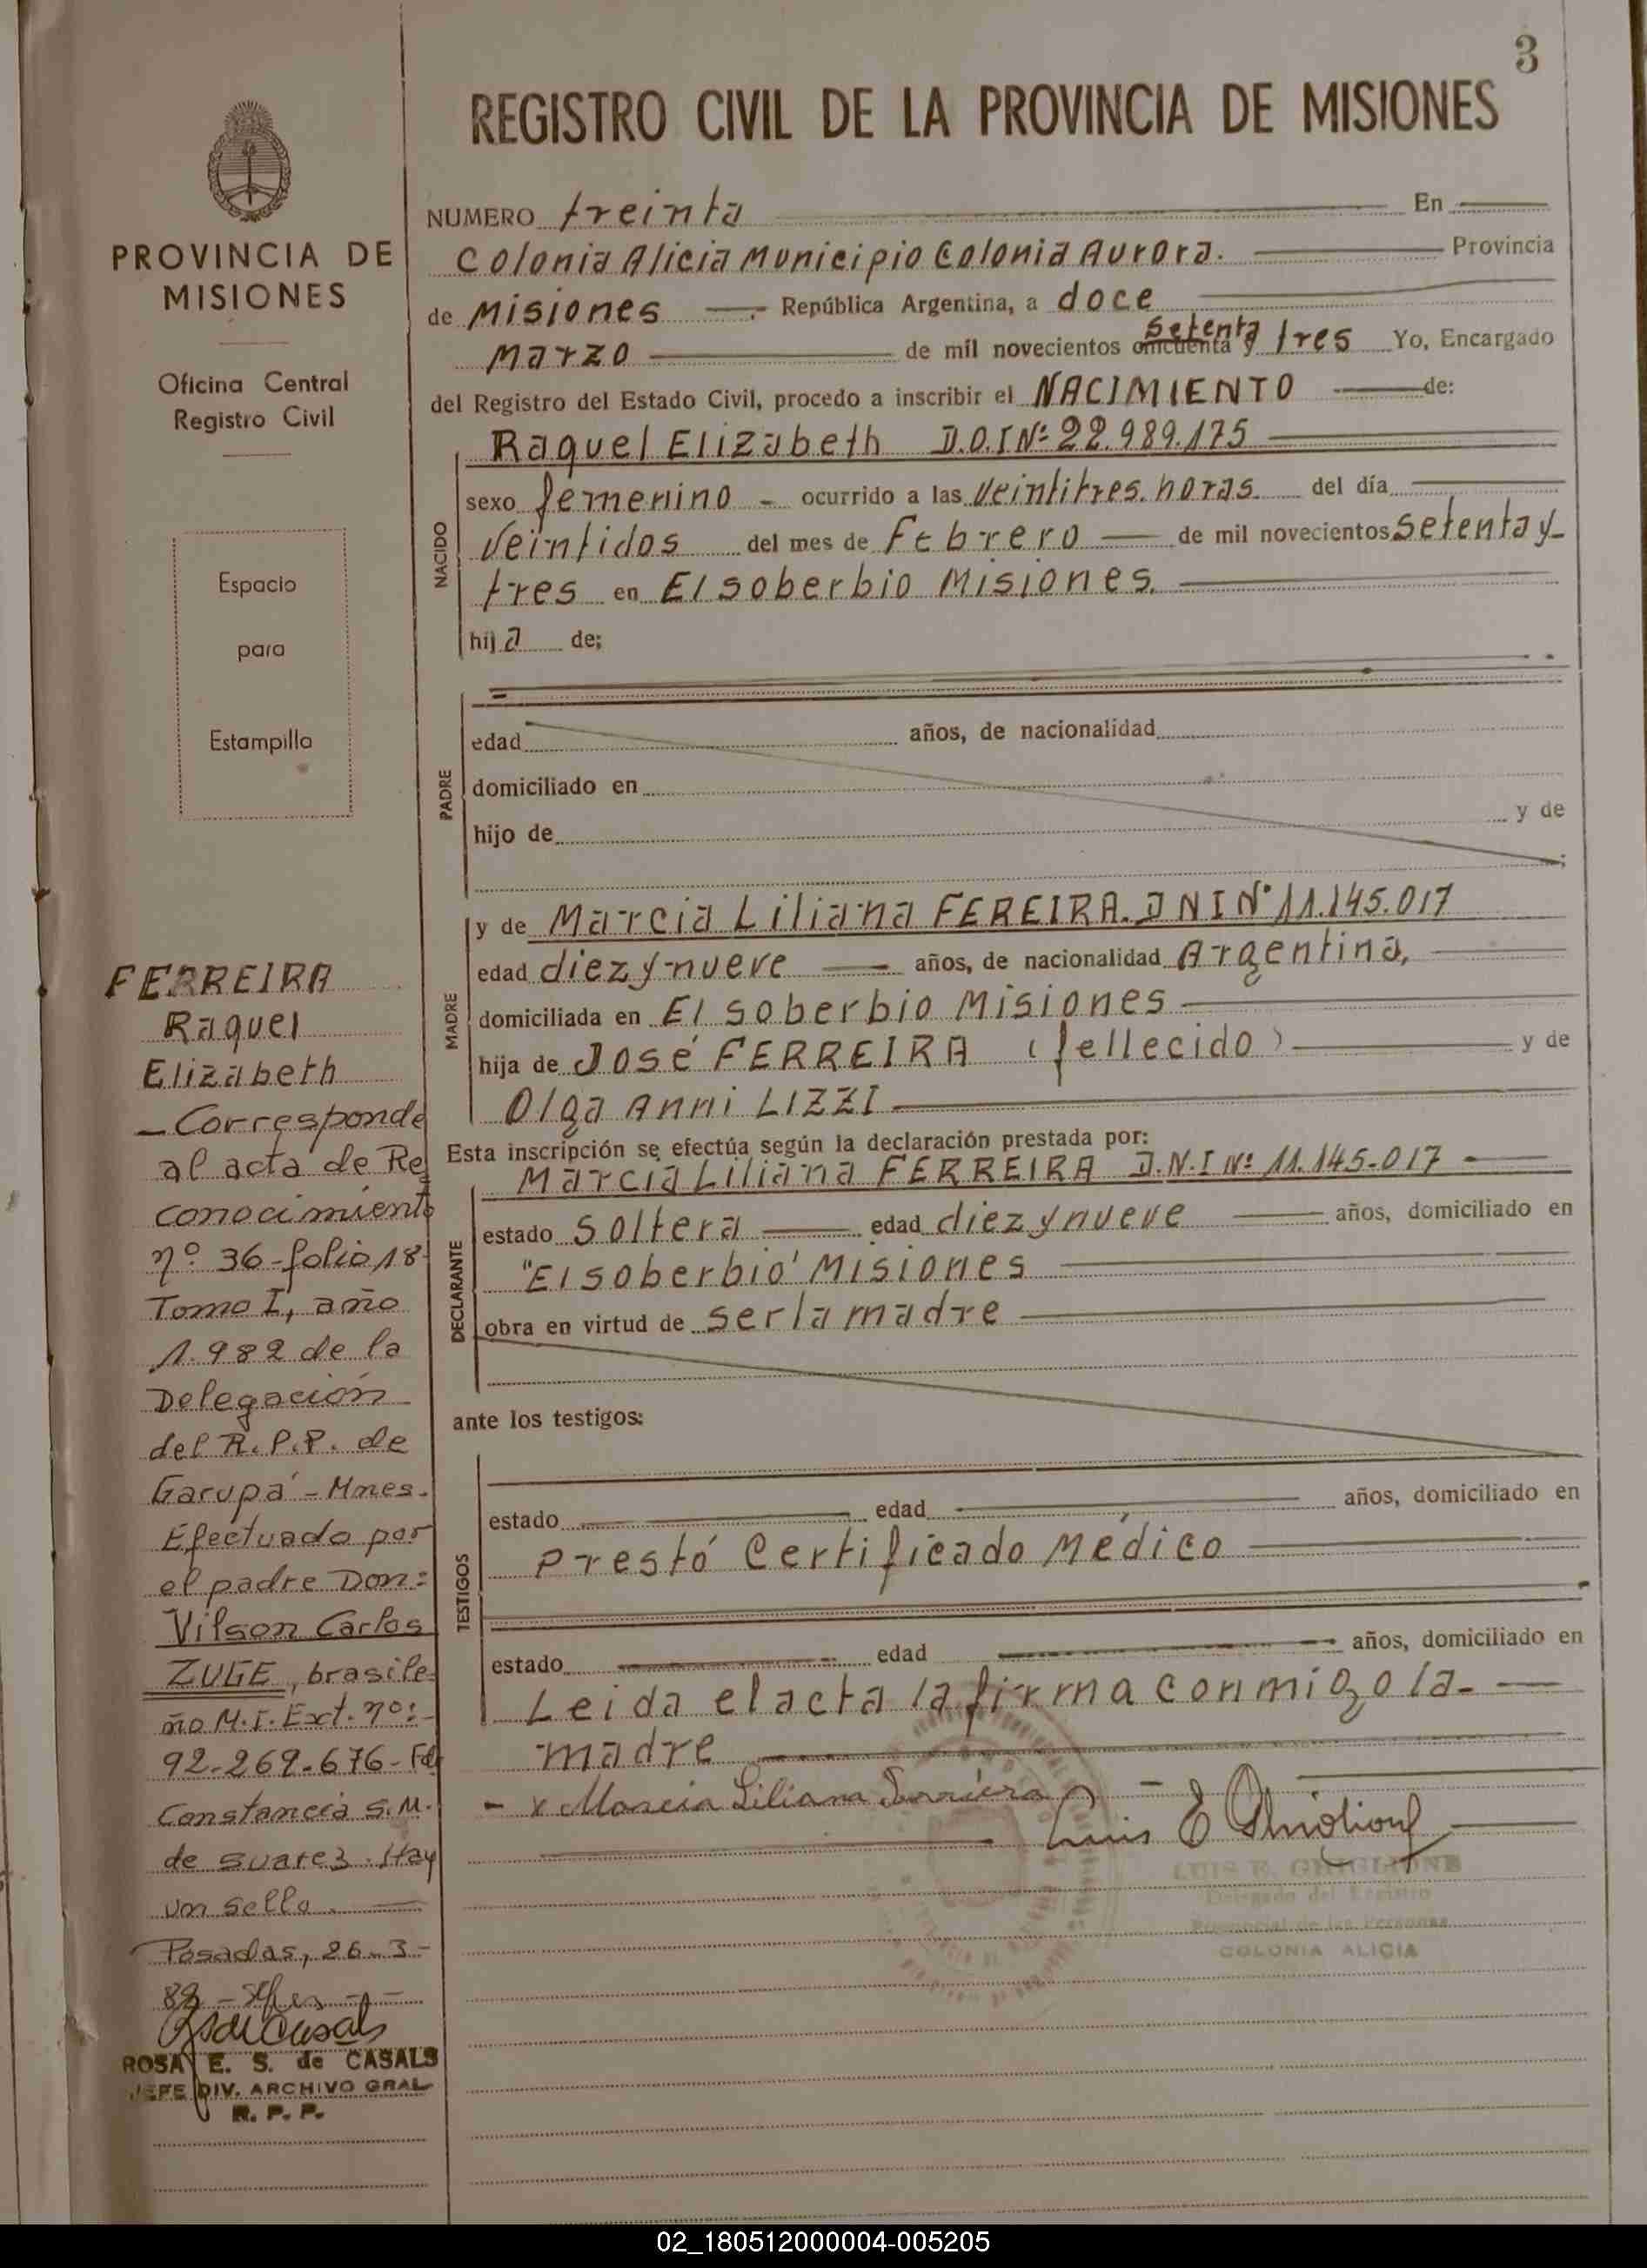 3
REGISTRO CIVIL DE LA PROVINCIA DE MISIONES
PROVINCIA DE
MISIONES
Oficina Central
Registro Civil
Espacio
para
Estampilla
NUMERO treinta En
Colonia Alicia Municipio Colonia Aurora. Provincia
de Misiones República Argentina, a doce
Marzo de mil novecientos cincuenta setenta y tres Yo, Encargado
del Registro del Estado Civil, procedo a inscribir el NACIMIENTO de:
NACIDO
Raquel Elizabeth D.O.I Nº 22.989.175
sexo femenino - ocurrido a las veintitres. horas del día
veintidos del mes de Febrero de mil novecientos setenta y
tres en El soberbio Misiones.
hija de;
PADRE
edad años, de nacionalidad
domiciliado en
hijo de y de
;
MADRE
y de Marcia Liliana FEREIRA. D N I Nº 11.145.017
edad diez y nueve años, de nacionalidad Argentina,
domiciliada en El soberbio Misiones
hija de José FERREIRA (fellecido) y de
Olga Anni LIZZI
Esta inscripción se efectúa según la declaración prestada por:
DECLARANTE
Marcia Liliana FERREIRA D.N.I Nº 11.145-017
estado soltera edad diez y nueve años, domiciliado en
"El soberbio" Misiones
obra en virtud de ser la madre
ante los testigos:
TESTIGOS
estado edad años, domiciliado en
Prestó Certificado Médico
estado edad años, domiciliado en
Leida el acta la firma conmigo la
madre
x Marcia Liliana Ferreira
Luis E Ghiglione
LUIS E. GHIGLIONE
Delegado del Registro
Provincial de las Personas
COLONIA ALICIA
FERREIRA
Raquel
Elizabeth
- Corresponde
al acta de Re
conocimiento
nº 36-folio 18
Tomo I, año
1.982 de la
Delegación
del R.P.P. de
Garupá - Mnes.
Efectuado por
el padre Don:
Vilson Carlos
ZUGE, brasile-
ño M.I. Ext. nº:
92-269.676- Fdo
Constancia S.M.
de Suarez. Hay
un sello.
Posadas, 26-3-
ROSA E. S. de CASALS
JEFE DIV. ARCHIVO GRAL
R. P. P.
02_180512000004-005205